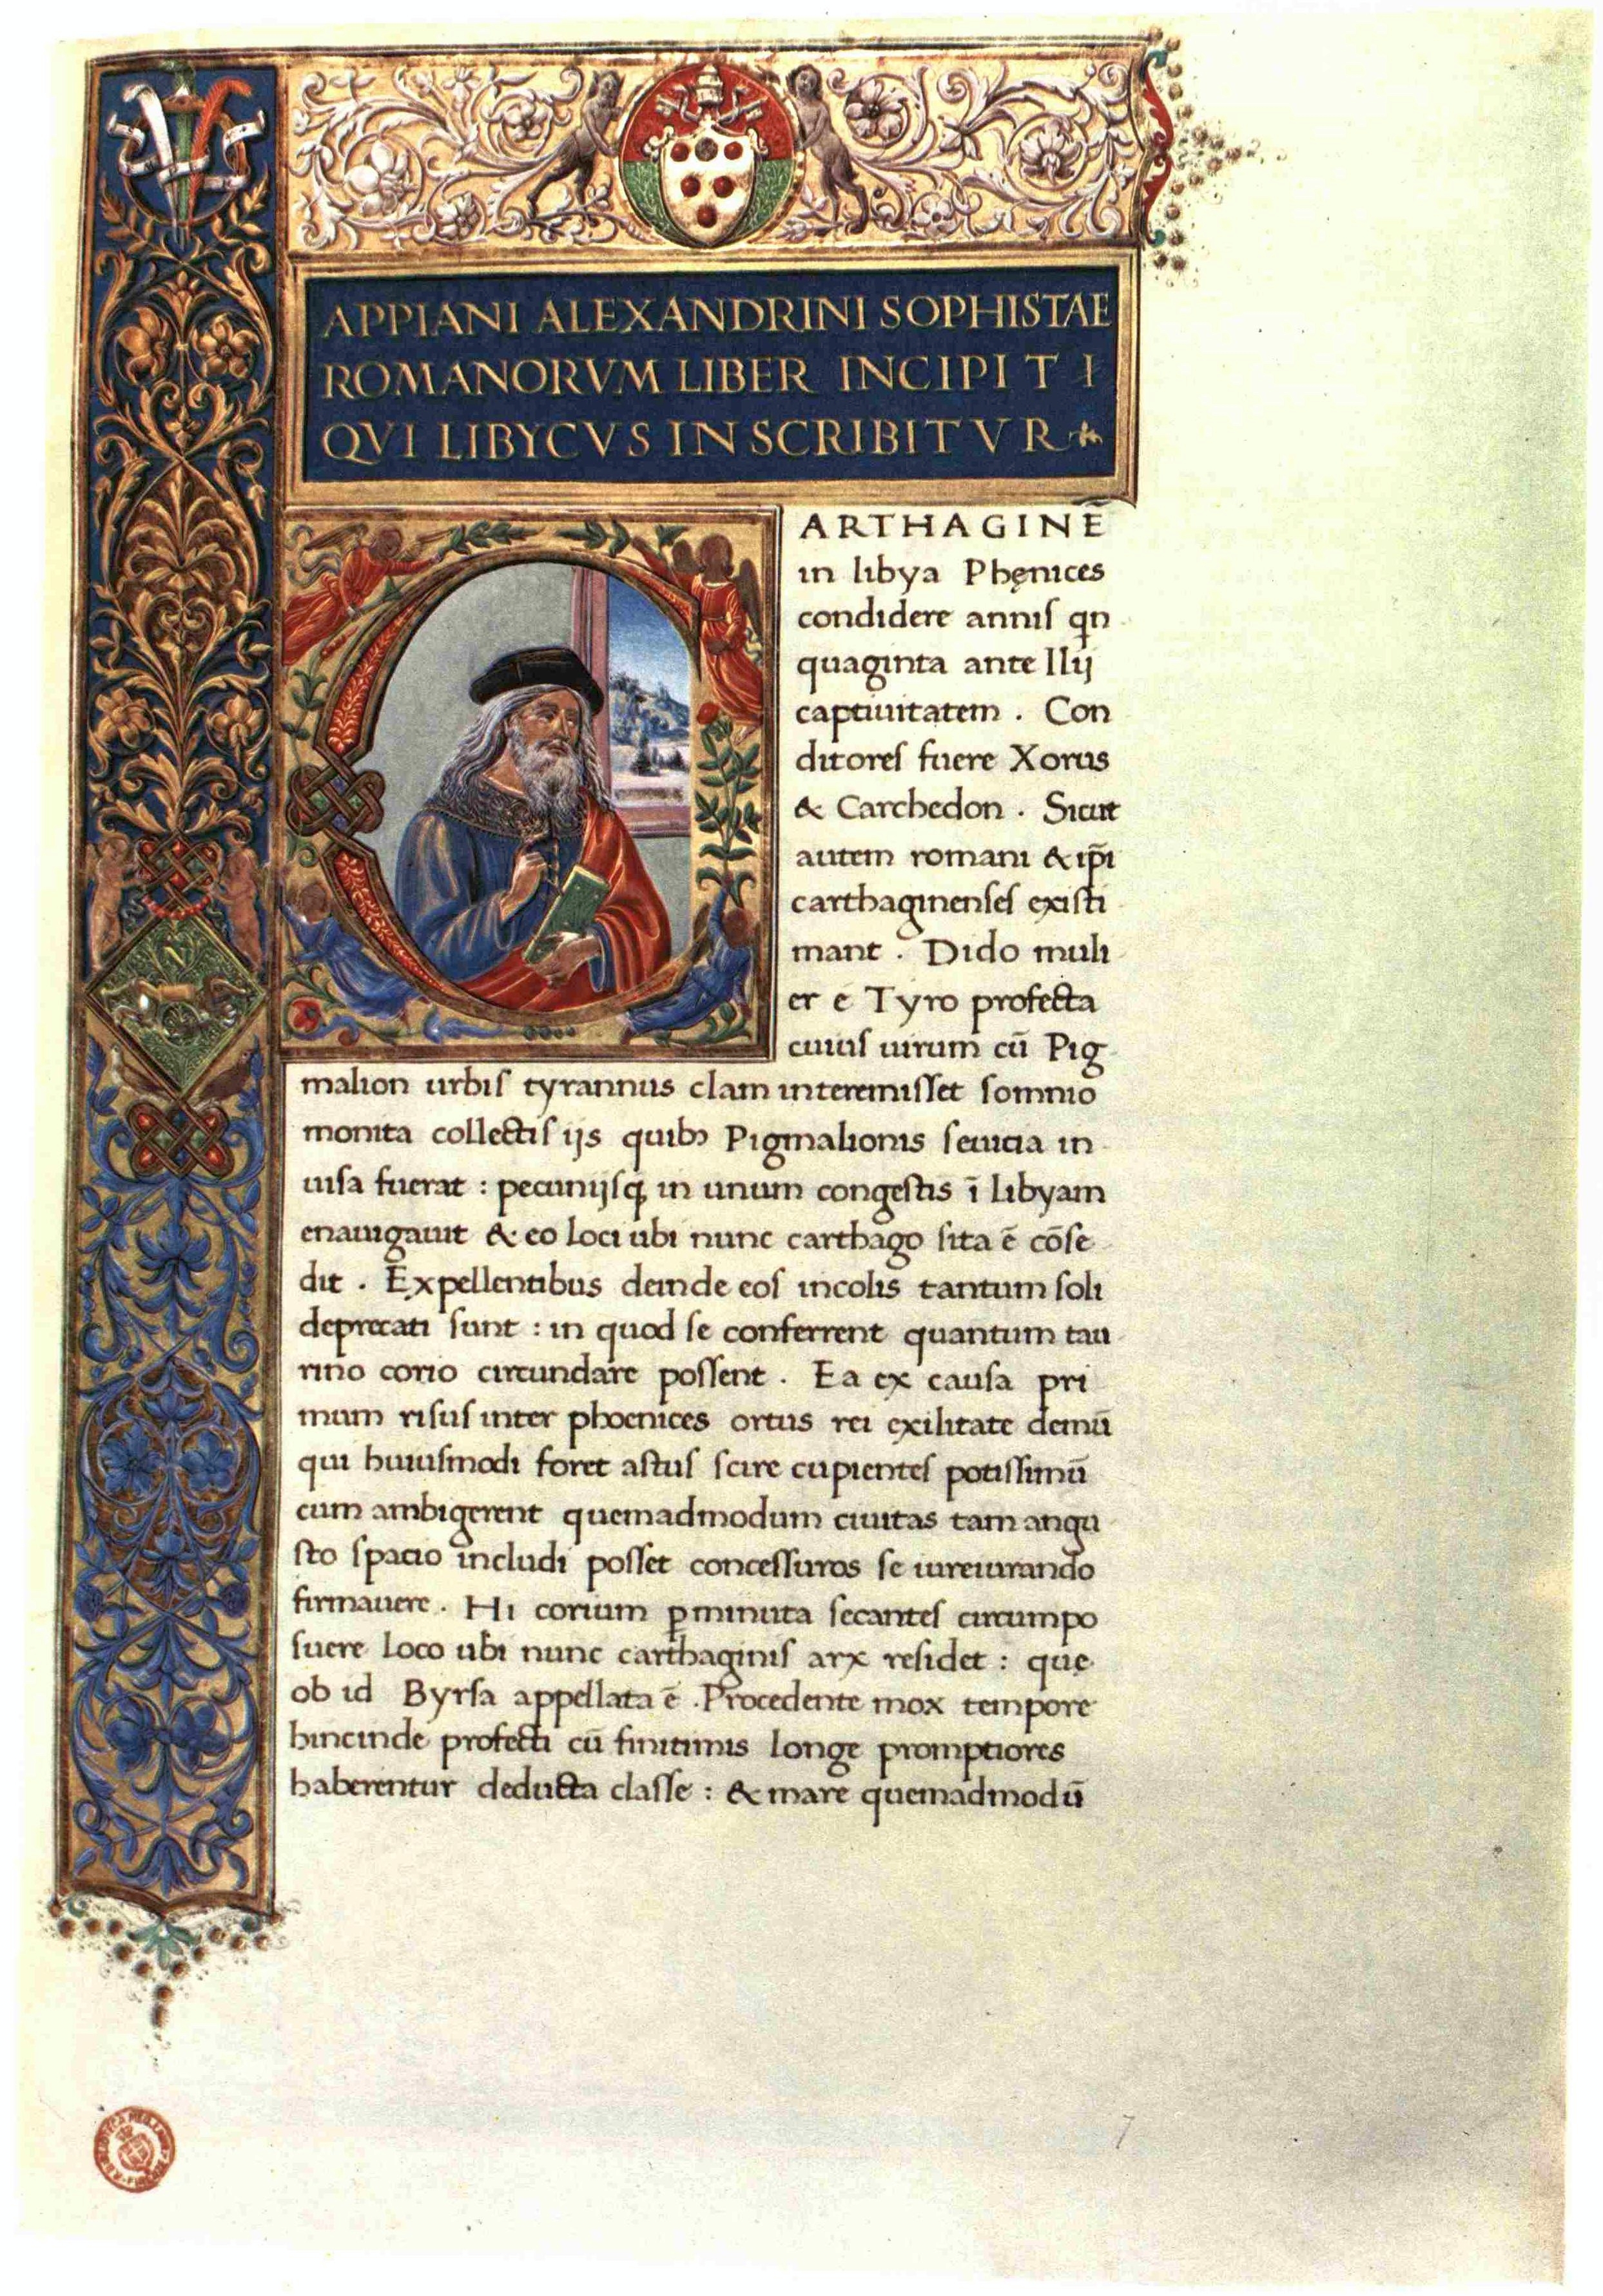 APPIANI ALEXANDRINI SOPHISTAE
ROMANORVM LIBER INCIPIT I
QVI LIBYCVS INSCRIBITVR
CARTHAGINĒ
in libya Phęnices
condidere anniſ qn
quaginta ante Ilij
captiuitatem . Con
ditoreſ fuere Xorus
& Carchedon . Sicut
autem romani & ip̄i
carthaginenſeſ exiſti
mant . Dido muli
er e Tyro profecta
cuiuſ uirum cū Pig
malion urbiſ tyrannus clam interemiſſet ſomnio
monita collectiſ ijs quibꝫ Pigmalionis ſeuicia in
uiſa fuerat : pecunijſqꝫ in unum congeſtis ī libyam
enauigauit & eo loci ubi nunc carthago ſita ē cōſe
dit . Expellentibus deinde eoſ incolis tantum ſoli
deprecati ſunt : in quod ſe conferrent quantum tau
rino corio circundare poſſent . Ea ex cauſa pri
mum riſuſ inter phoenices ortus rei exilitate demū
qui huiuſmodi foret aſtuſ ſcire cupienteſ potiſſimū
cum ambigerent quemadmodum ciuitas tam angu
ſto ſpacio includi poſſet conceſſuros ſe iureiurando
firmauere . Hi corium ꝑminuta ſecanteſ circumpo
ſuere loco ubi nunc carthaginiſ arx reſidet : quę
ob id Byrſa appellata ē . Procedente mox tempore
hincinde profecti cū finitimis longe promptiores
haberentur deducta claſſe : & mare quemadmodū
7